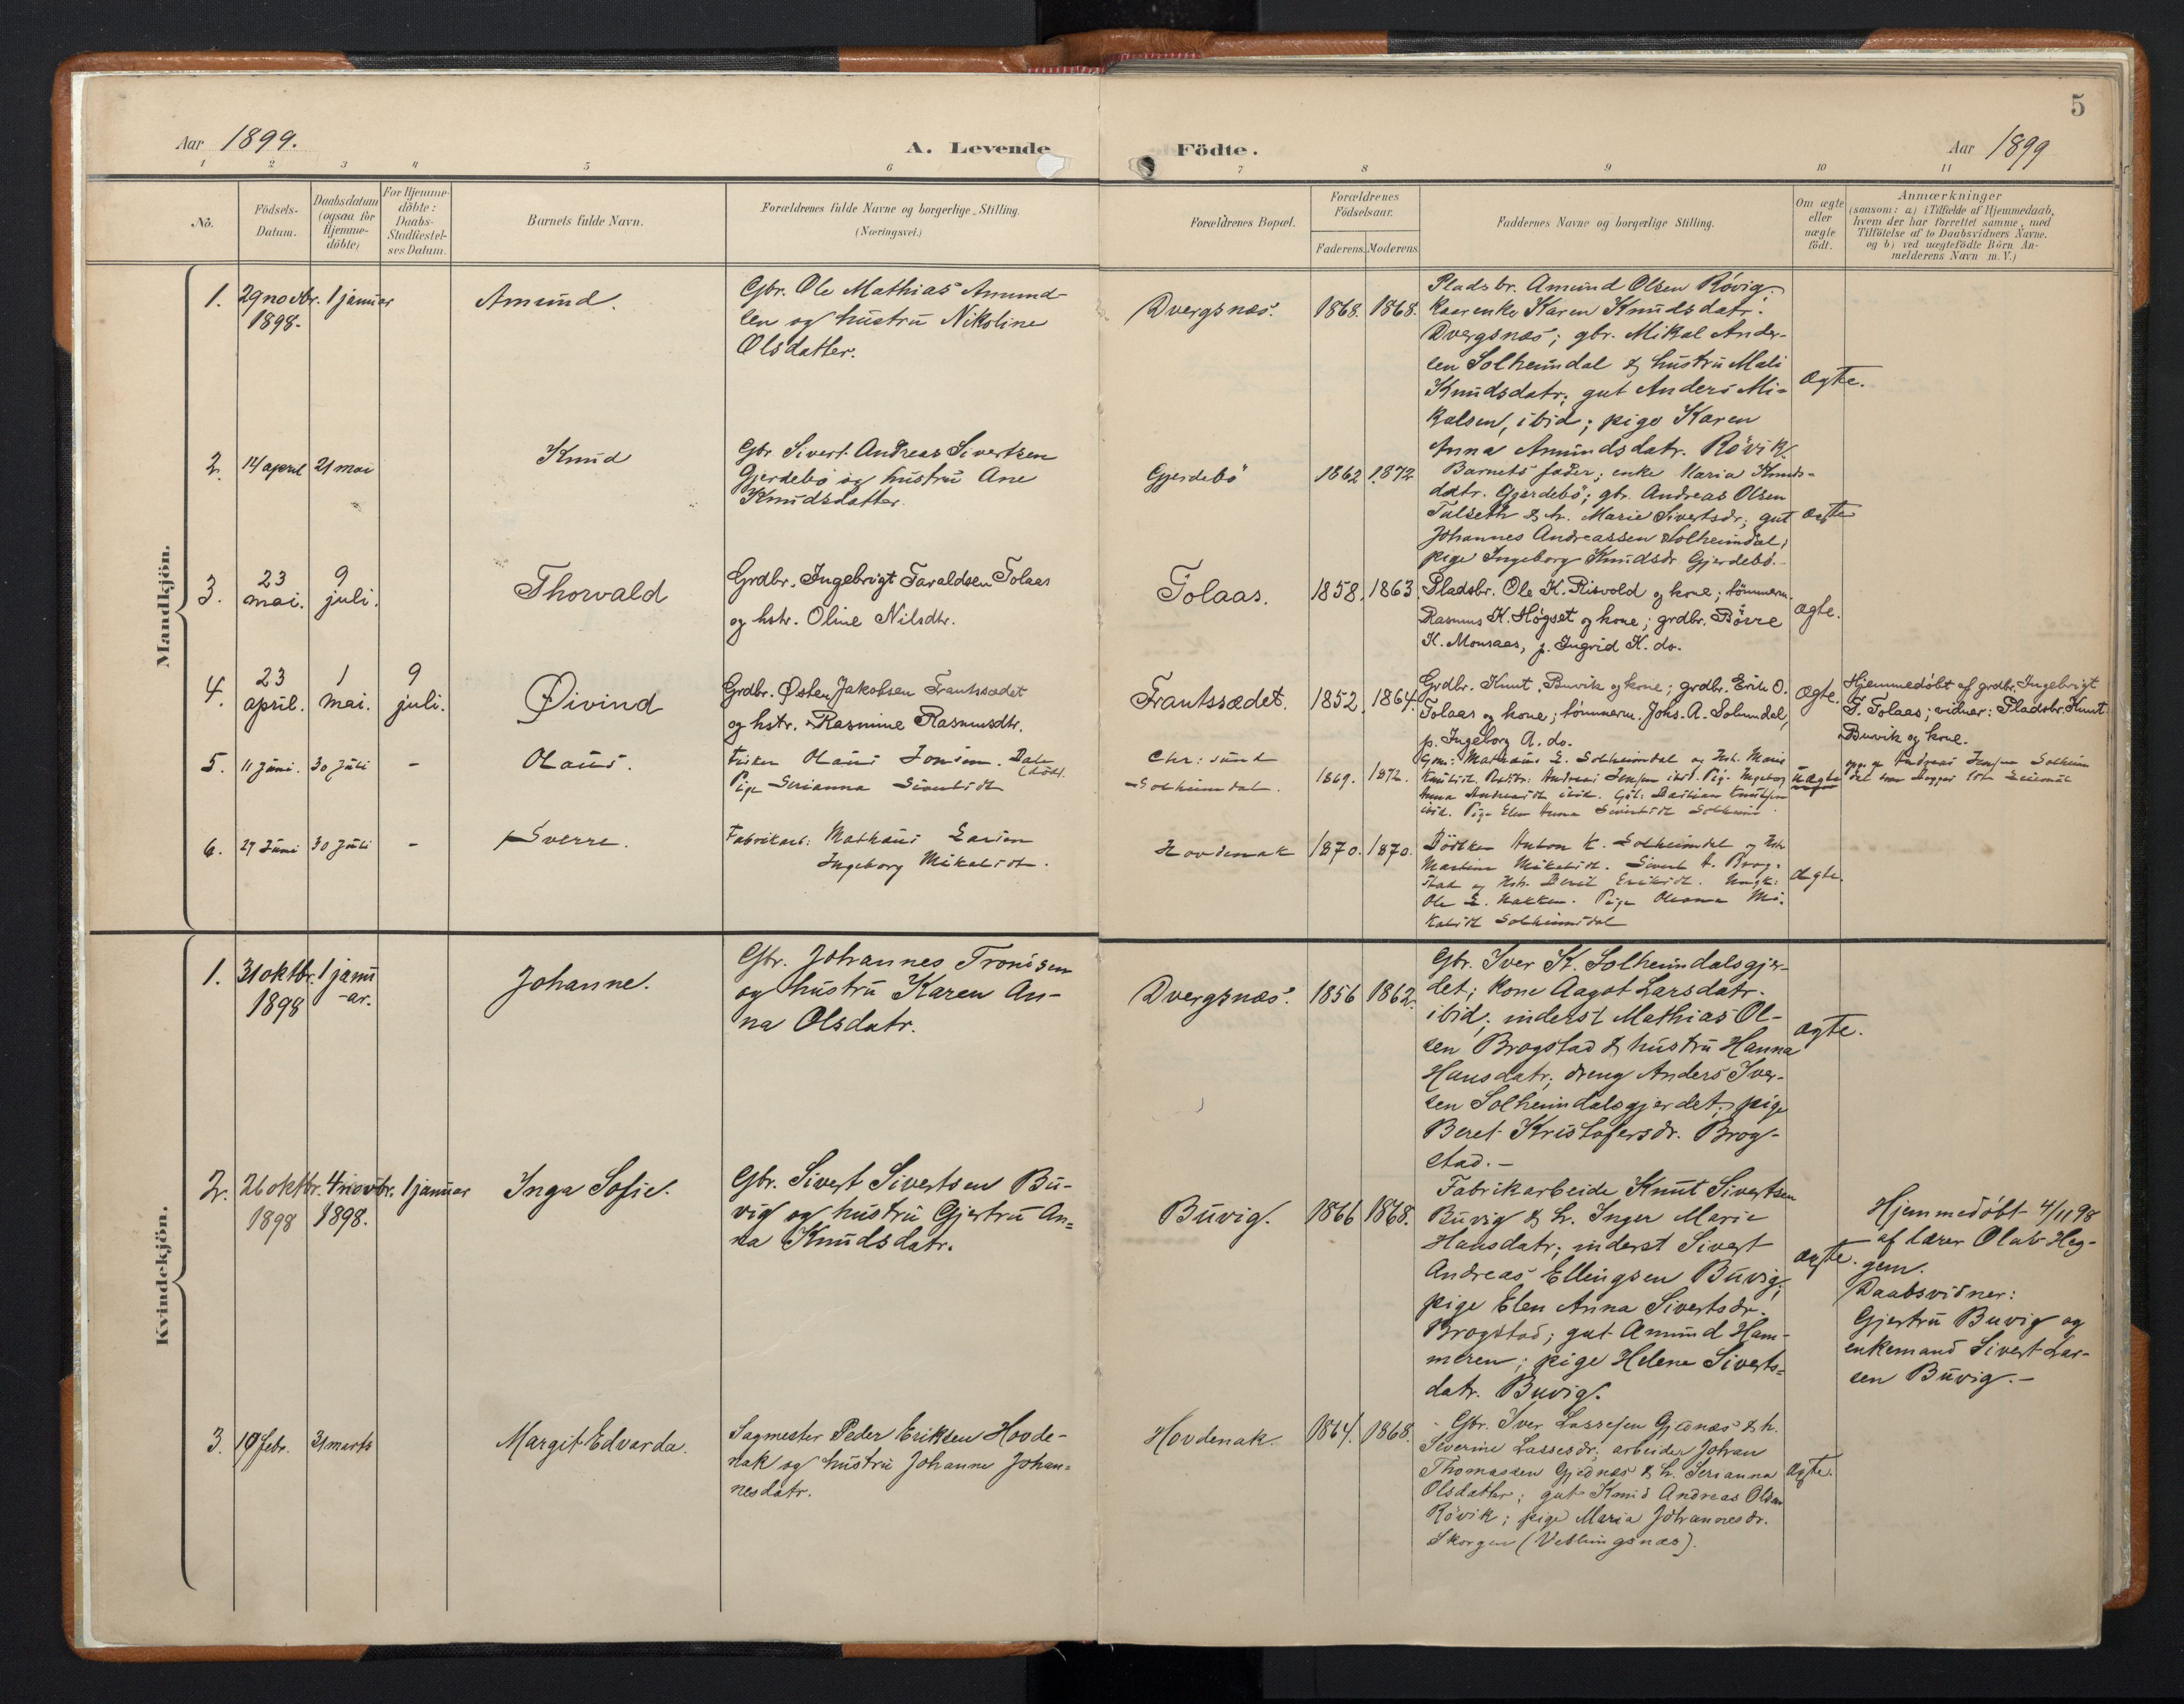 5
Aar 1899.
A. Levende Födte.
Aar 1899
1 2 3 4 5 6 7 8 9 10 11
No.
Födsels-
Datum.
Daabsdatum
(ogsaa for
Hjemme-
döbte)
For Hjemme-
döbte:
Daabs-
Stadfæstel-
ses Datum.
Barnets fulde Navn.
Forældrenes fulde Navne og borgerlige Stilling.
(Næringsvei.)
Forældrenes Bopæl.
Forældrenes
Födselsaar.
Faderens. Moderens.
Faddernes Navne og borgerlige Stilling.
Om ægte
eller
uægte
födt.
Anmærkninger
(saasom: a) i Tilfælde af Hjemmedaab,
hvem der har forrettet samme, med
Tilföielse af to Daabsvidners Navne.
og b) ved uægtefödte Börn An-
melderens Navn m. V.)
Mandkjön.
1. 29 novbr. 1 januar
1898.
Amund.
Gbr. Ole Mathias Amund-
sen og hustru Nikoline
Olsdatter.
Dvergsnæs. 1868. 1868.
Pladsbr. Amund Olsen Rövig;
kaarenke Karen Knudsdatr.
Dvergsnæs; gbr. Mikal Ander-
sen Solheimdal & hustru Mali
Knudsdatr; gut Anders Mi-
kalsen, ibid; pige Karen
Anna Amundsdatr. Rövik.
ægte.
2. 14 april 21 mai
Knud
Gbr Sivert Andreas Sivertsen
Gjerdebö og hustru Ane
Knudsdatter.
Gjerdebö 1862 1872
Barnets fader; enke Maria Knuds-
datr. Gjerdebö; gbr. Andreas Olsen
Talseth & h. Marie Sivertsdr; gut
Johannes Andreassen Solheimdal;
pige Ingeborg Knudsdr. Gjerdebö.
ægte
3. 23 mai. 9 juli.
Thorvald
Grdbr. Ingebrigt Taraldsen Tolaas
og hstr. Oline Nilsdtr.
Tolaas. 1858. 1863.
Pladsbr. Ole K. Risvold og kone; tömmerm.
Rasmus K. Högset og kone; grdbr. Börre
K. Monsaas, p. Ingrid K. do.
ægte.
4. 23 april. 1 mai. 9 juli.
Øivind
Grdbr. Østen Jakobsen Frantssædet
og hstr. Rasmine Rasmusdtr.
Frantssædet. 1852. 1864.
Grdbr. Knut Buvik og kone; grdbr. Erik O.
Tolaas og kone; tömmerm. Johs. A. Solemdal,
p. Ingeborg A. do.
ægte.
Hjemmedöbt af grdbr. Ingebrigt
T. Tolaas; vidner: Pladsbr. Knut
Buvik og kone.
5. 11 Juni. 30 Juli -
Olaus.
Fisker Olaus Jonsen. Dale
Pige Serianna Sivertsdt
Chr:sund
Solheimdal. 1869. 1872.
Gbr: Mathæus E. Solheimdal og Hst. Marie
Knutsdt. Andreas Jensen ibid. Pig. Ingeborg
Anna Andreasdt ibid. Bastian Knutsen
ibid. Pige Elen Anna Sivertsdt Solheimd
uægte
Andreas Jensen Solheim
dal
6. 27 Juni 30 Juli -
Sverre.
Fabrikarb: Mathæus Larsen
Ingeborg Mikalsdt.
Hovdenak 1870. 1870.
Bödker Anton K. Solheimdal og Hst
Martine Mikalsdt. Sivert A. Brog-
stad og Hst. Beret Eriksdt. Ungk:
Ole E. Nakken. Pige Oleanna Mi-
kalsdt Solheimdal
ægte.
Kvindekjön.
1. 31 oktbr. 1 janu
1898 -ar.
Johanne.
Gbr. Johannes Tronsen
og hustru Karen An-
na Olsdatr.
Dvergsnæs. 1856 1862.
Gbr. Iver K. Solheimdalsgjer-
det; kone Aagot Larsdatr.
ibid; inderst Mathias Ol-
sen Brogstad & hustru Hanna
Hansdatr; dreng Anders Iver-
sen Solheimdalsgjerdet; pige
Beret Kristofersdr. Brog-
stad.-
ægte.
2. 26 oktbr. 4 novbr. 1 januar
1898 1898.
Inga Sofie.
Gbr. Sivert Sivertsen Bu-
vig og hustru Gjertru An-
na Knudsdatr.
Buvig. 1866 1868.
Fabrikarbeide Knut Sivertsen
Buvig & h. Inger Marie
Hansdatr; inderst Sivert
Andreas Ellingsen Buvig;
pige Elen Anna Sivertsdr.
Brogstad; gut Amund Ham-
meren; pige Helene Siverts-
datr. Buvig.
ægte.
Hjemmedöbt 4/11 98
af lærer Olab Heg-
gem.
Daabsvidner:
Gjertru Buvig og
enkemand Sivert Lar-
sen Buvig.-
3. 19 febr. 31 marts
Margit Edvarda.
Sagmester Peder Eriksen Hovde-
nak og hustru Johanne Johan-
nesdatr.
Hovdenak. 1864. 1868.
Gbr. Iver Lassesen Gjednæs & h.
Severine Lassesdr; arbeider Johan
Thomassen Gjednæs & h. Serianna
Olsdatter; gut Knud Andreas Olsen
Rövik; pige Maria Johannesdr.
Skorgen (Veblungsnæs).
ægte.